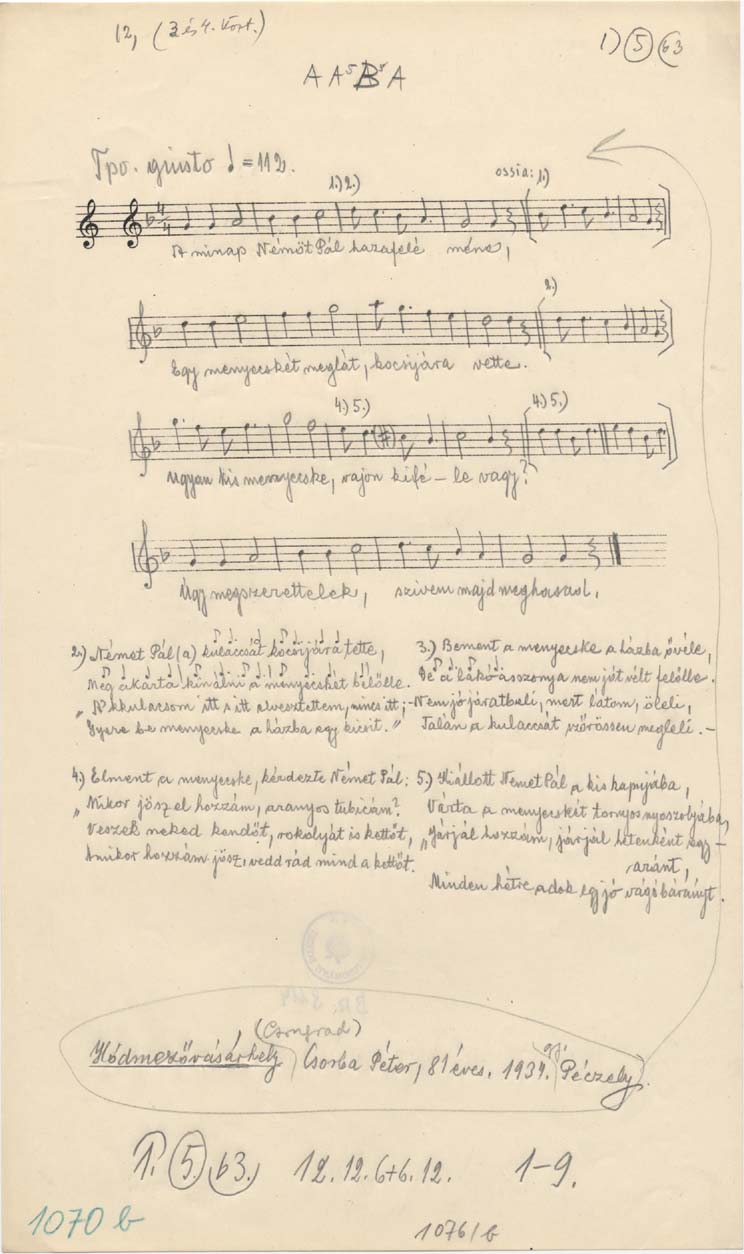 12, (3 és 4. vört.)
1) 5 b3
A A⁵ B⁵ A
Tpo. giusto ♩ = 112.
1.) 2.)
ossia: 1.)
A minap Németh Pál hazafelé méne,
2.)
Egy menyecskét meglát, kocsijára vette.
4.) 5.)
4.) 5.)
Ugyan kis menyecske, vajon kifé – le vagy?
Úgy megszerettelek, szivem majd meghasad.
2.) Német Pál (a) kulaccsát kocsijára tette,
Még akarta kínálni a menyecskét belőlle.
„Kis kulacsom itt s itt elvesztettem, nincs itt;
Gyere be menyecske a házba egy kicsit."
3.) Bement a menyecske a házba ővéle,
De a lakóasszonya nem jót vélt felőlle.
– Nem jó járatbeli, mert látom, öleli,
Talán a kulaccsát szőrössen megleli. –
4.) Elment a menyecske, kérdezte Német Pál:
„Mikor jösz el hozzám, aranyos tubicám?
Veszek neked kendőt, rokolyát is kettőt,
Amikor hozzám jösz, vedd rád mind a kettőt.
5.) Kiállott Német Pál a kis kapujába,
Várta a menyecskét tornyos nyoszolyába,
„Járjál hozzám, járjál hetenként egy –
aránt,
Minden hétre adok egy jó vágóbárányt.
(Csongrad)
Hódmezővásárhely Csorba Péter, 81 éves. 1934. gy. Péczely.
1. 5. b3. 12. 12. 6+6. 12. 1–9.
1070 b
1076/b